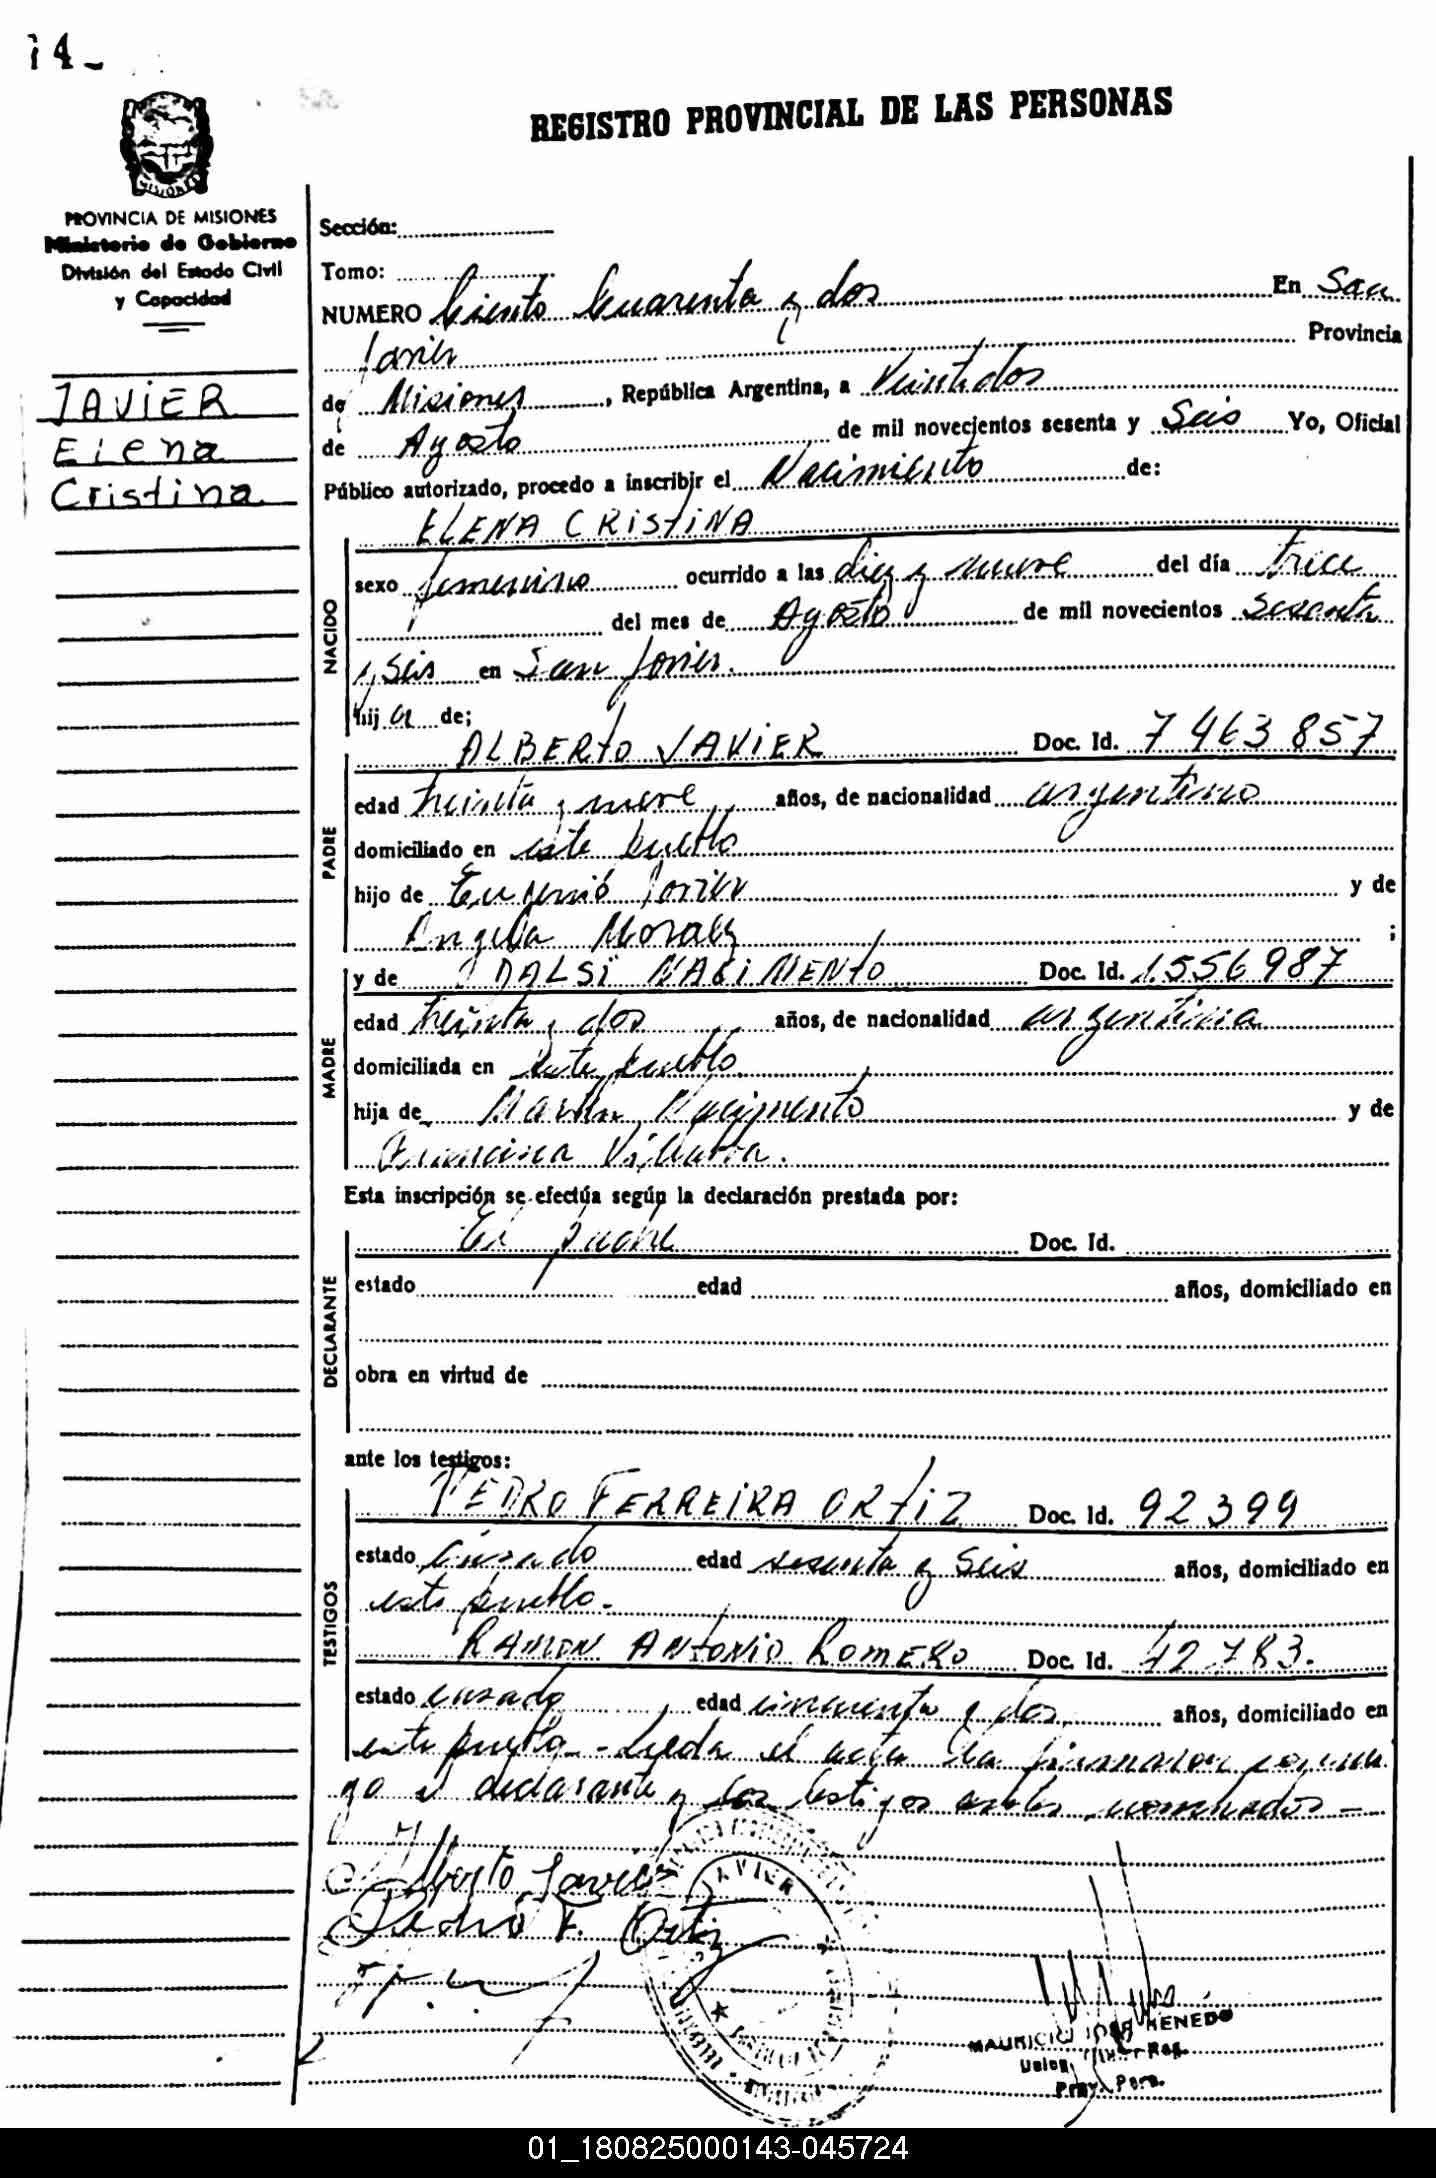 14_
REGISTRO PROVINCIAL DE LAS PERSONAS
MISIONES
PROVINCIA DE MISIONES
Ministerio de Gobierno
División del Estado Civil
y Capacidad
JAVIER
Elena
Cristina
Sección:
Tomo:
NUMERO Ciento Cuarenta y dos En San
Javier Provincia
de Misiones, República Argentina, a Veintidos
de Agosto de mil novecientos sesenta y Seis Yo, Oficial
Público autorizado, procedo a inscribir el Nacimiento de:
ELENA CRISTINA
NACIDO
sexo femenino ocurrido a las diez y nueve del día trece
del mes de Agosto de mil novecientos sesenta
y seis en San Javier.
hija de;
PADRE
ALBERTO JAVIER Doc. Id. 7463857
edad treinta y nueve años, de nacionalidad argentino
domiciliado en este pueblo
hijo de Eugenio Javier y de
Angela Moralez ;
MADRE
y de DALSI NACIMENTO Doc. Id. 1.556987
edad treinta y dos años, de nacionalidad argentina
domiciliada en este pueblo
hija de Nacimento y de
Francisca Villalba.
Esta inscripción se efectúa según la declaración prestada por:
DECLARANTE
El padre Doc. Id.
estado edad años, domiciliado en
obra en virtud de
ante los testigos:
TESTIGOS
PEDRO FERREIRA ORTIZ Doc. Id. 92399
estado casado edad sesenta y seis años, domiciliado en
este pueblo.
RAMON ANTONIO ROMERO Doc. Id. 42783.
estado casado edad cincuenta y dos años, domiciliado en
este pueblo - Leida el acta la firmaron conmi
go el declarante y los testigos antes nombrados -
Alberto Javier
Pedro F. Ortiz
JAVIER
MAURICIO JOSE RENEDO
Prov. Pers.
01_180825000143-045724